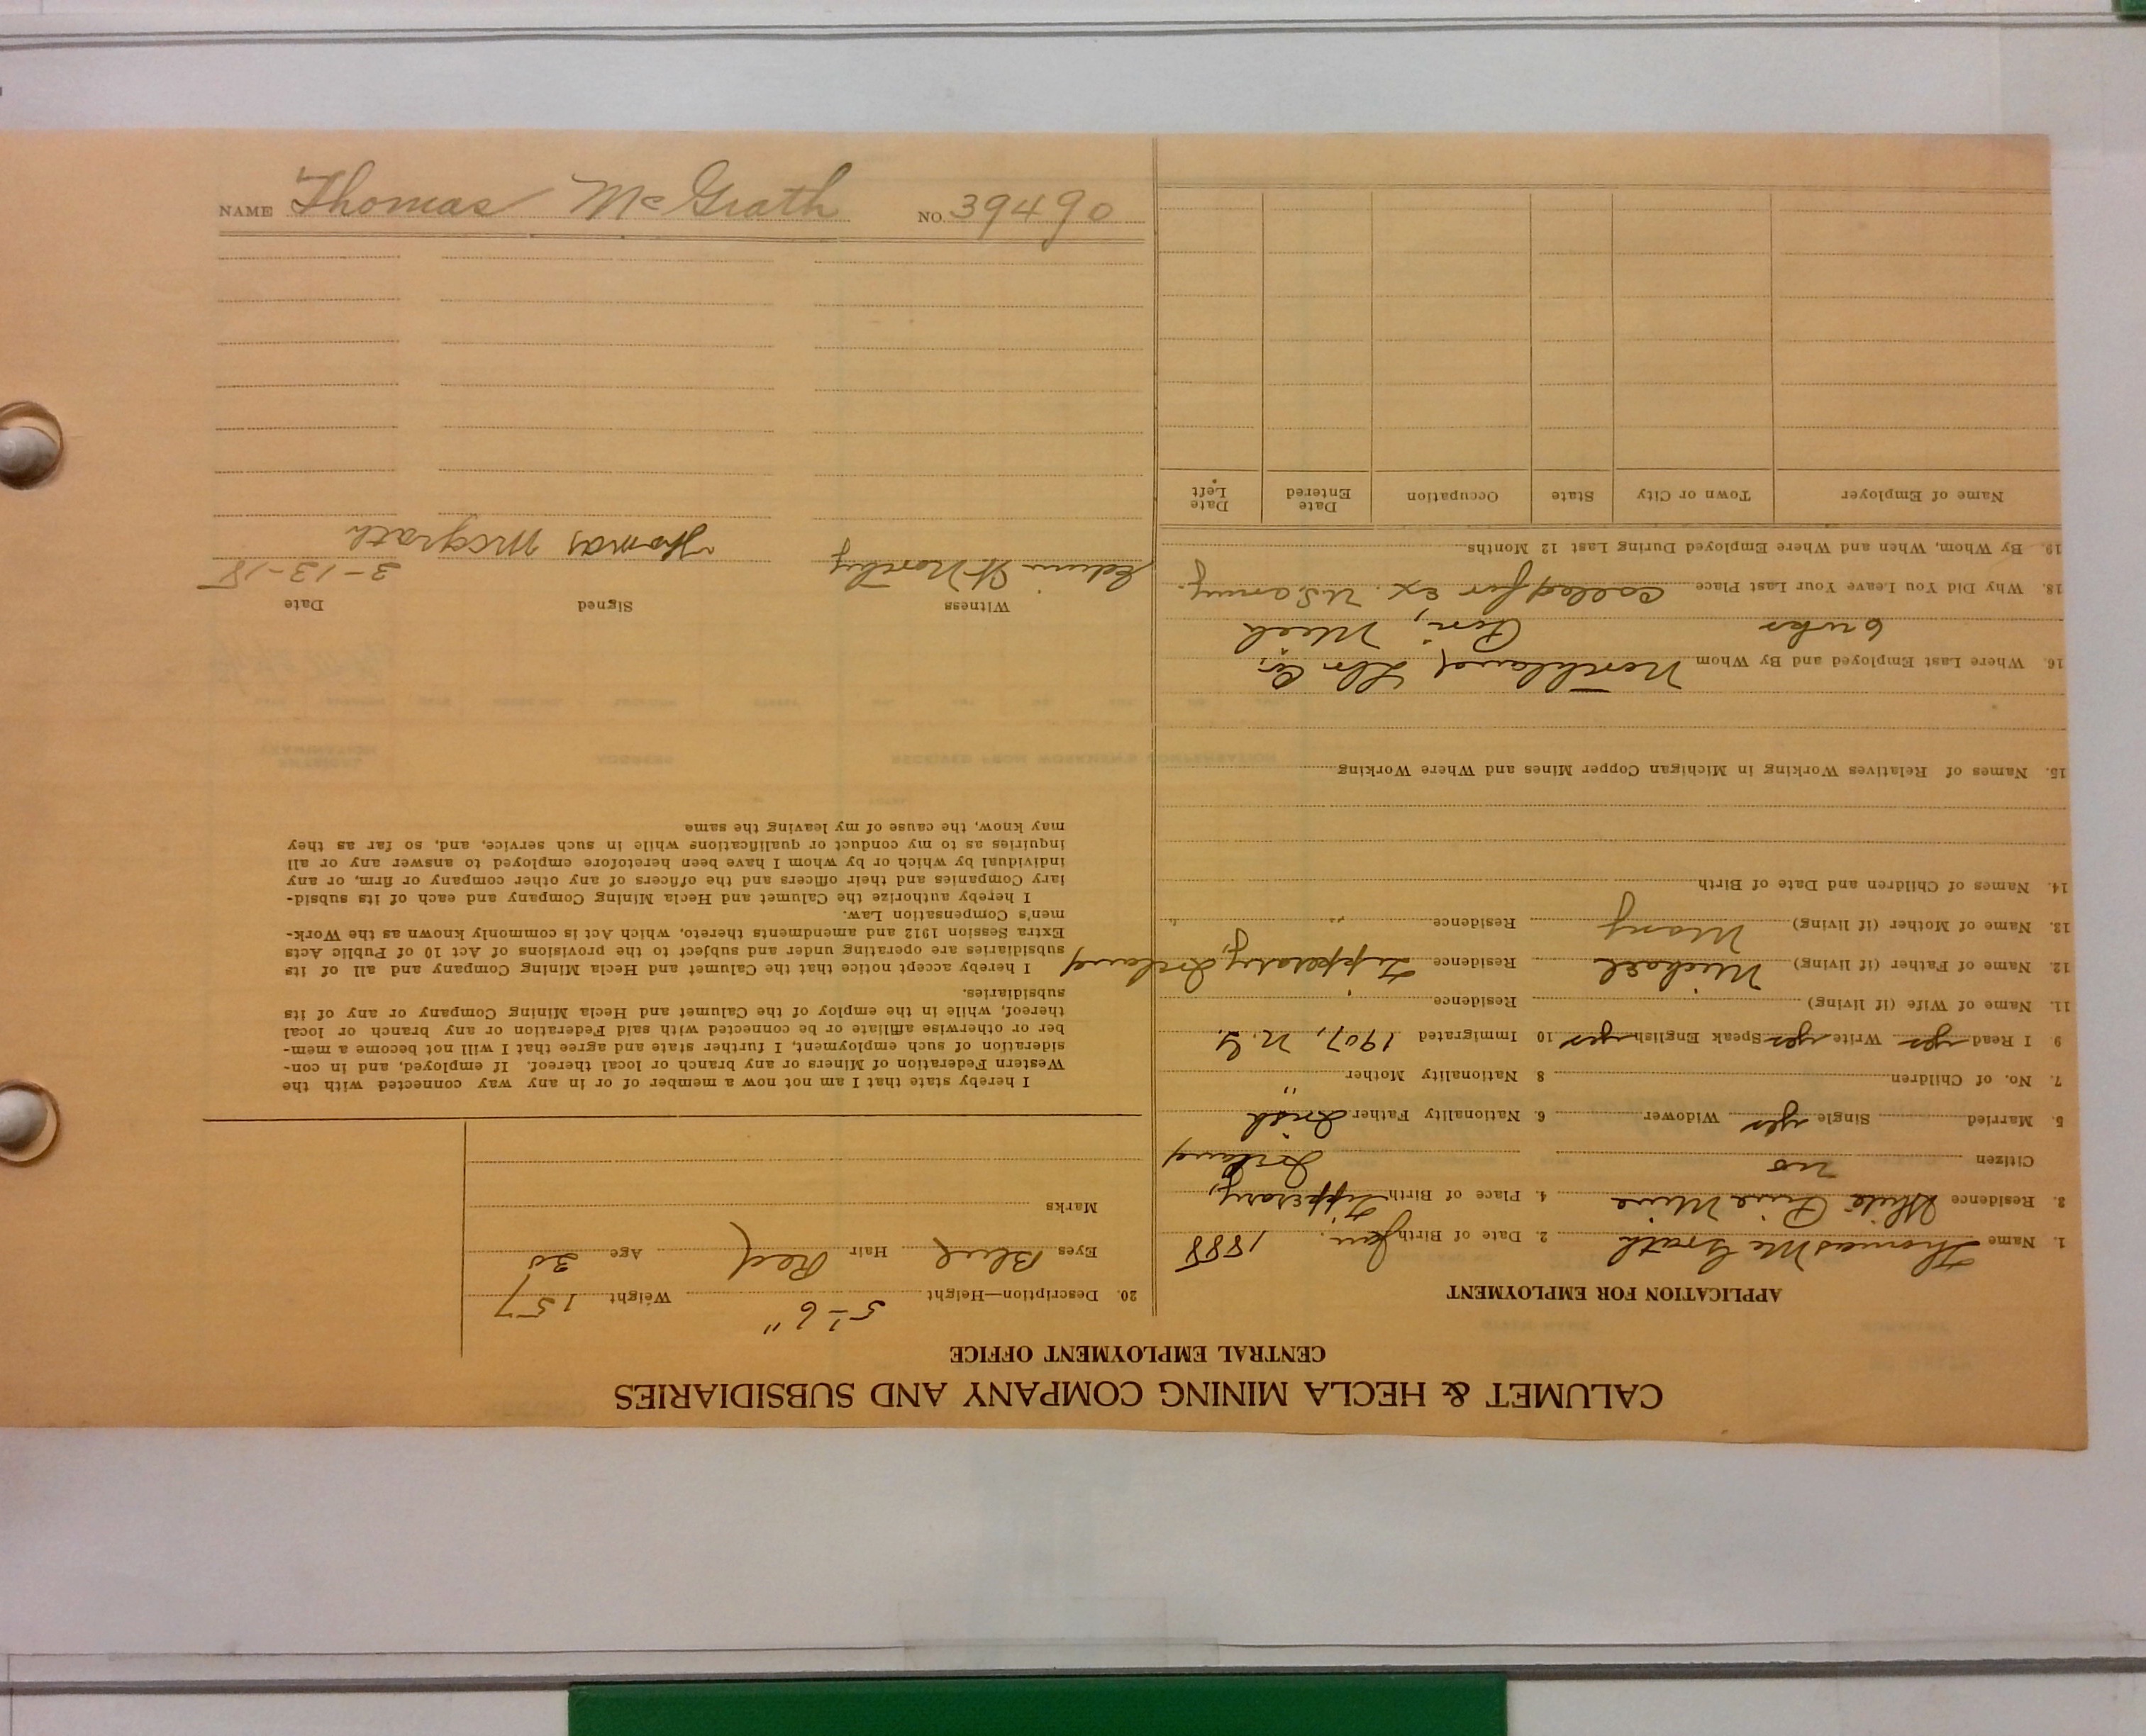 CALUMET & HECLA MINING COMPANY AND SUBSIDIARIES
CENTRAL EMPLOYMENT OFFICE
APPLICATION FOR EMPLOYMENT
1. Name Thomas Mc Grath 2. Date of Birth Jan. 1888
3. Residence White Pine Mine 4. Place of Birth Tipperary,
Citizen no Ireland
5. Married Single yes Widower 6. Nationality Father Irish
7. No. of Children 8 Nationality Mother "
9 I Read yes Write yes Speak English yes 10 Immigrated 1907, N.Y.
11. Name of Wife (if living) Residence
12. Name of Father (if living) Michael Residence Tipperary, Ireland
13. Name of Mother (if living) Mary Residence " "
14. Names of Children and Date of Birth
15. Names of Relatives Working in Michigan Copper Mines and Where Working
16. Where Last Employed and By Whom Northland Lbr Co,
6 wks Mich
18. Why Did You Leave Your Last Place called for ex. U.S. army.
19. By Whom, When and Where Employed During Last 12 Months
Name of Employer Town or City State Occupation Date Entered Date Left
20. Description—Height 5'-6" Weight 157
Eyes Blue Hair Red Age 30
Marks
I hereby state that I am not now a member of or in any way connected with the
Western Federation of Miners or any branch or local thereof. If employed, and in con-
sideration of such employment, I further state and agree that I will not become a mem-
ber or otherwise affiliate or be connected with said Federation or any branch or local
thereof, while in the employ of the Calumet and Hecla Mining Company or any of its
subsidiaries.
I hereby accept notice that the Calumet and Hecla Mining Company and all of its
subsidiaries are operating under and subject to the provisions of Act 10 of Public Acts
Extra Session 1912 and amendments thereto, which Act is commonly known as the Work-
men's Compensation Law.
I hereby authorize the Calumet and Hecla Mining Company and each of its subsid-
iary Companies and their officers and the officers of any other company or firm, or any
individual by which or by whom I have been heretofore employed to answer any or all
inquiries as to my conduct or qualifications while in such service, and, so far as they
may know, the cause of my leaving the same
Witness Signed Date
Edwin Thomas Mcgrath 3-13-18
NAME Thomas McGrath NO. 39490